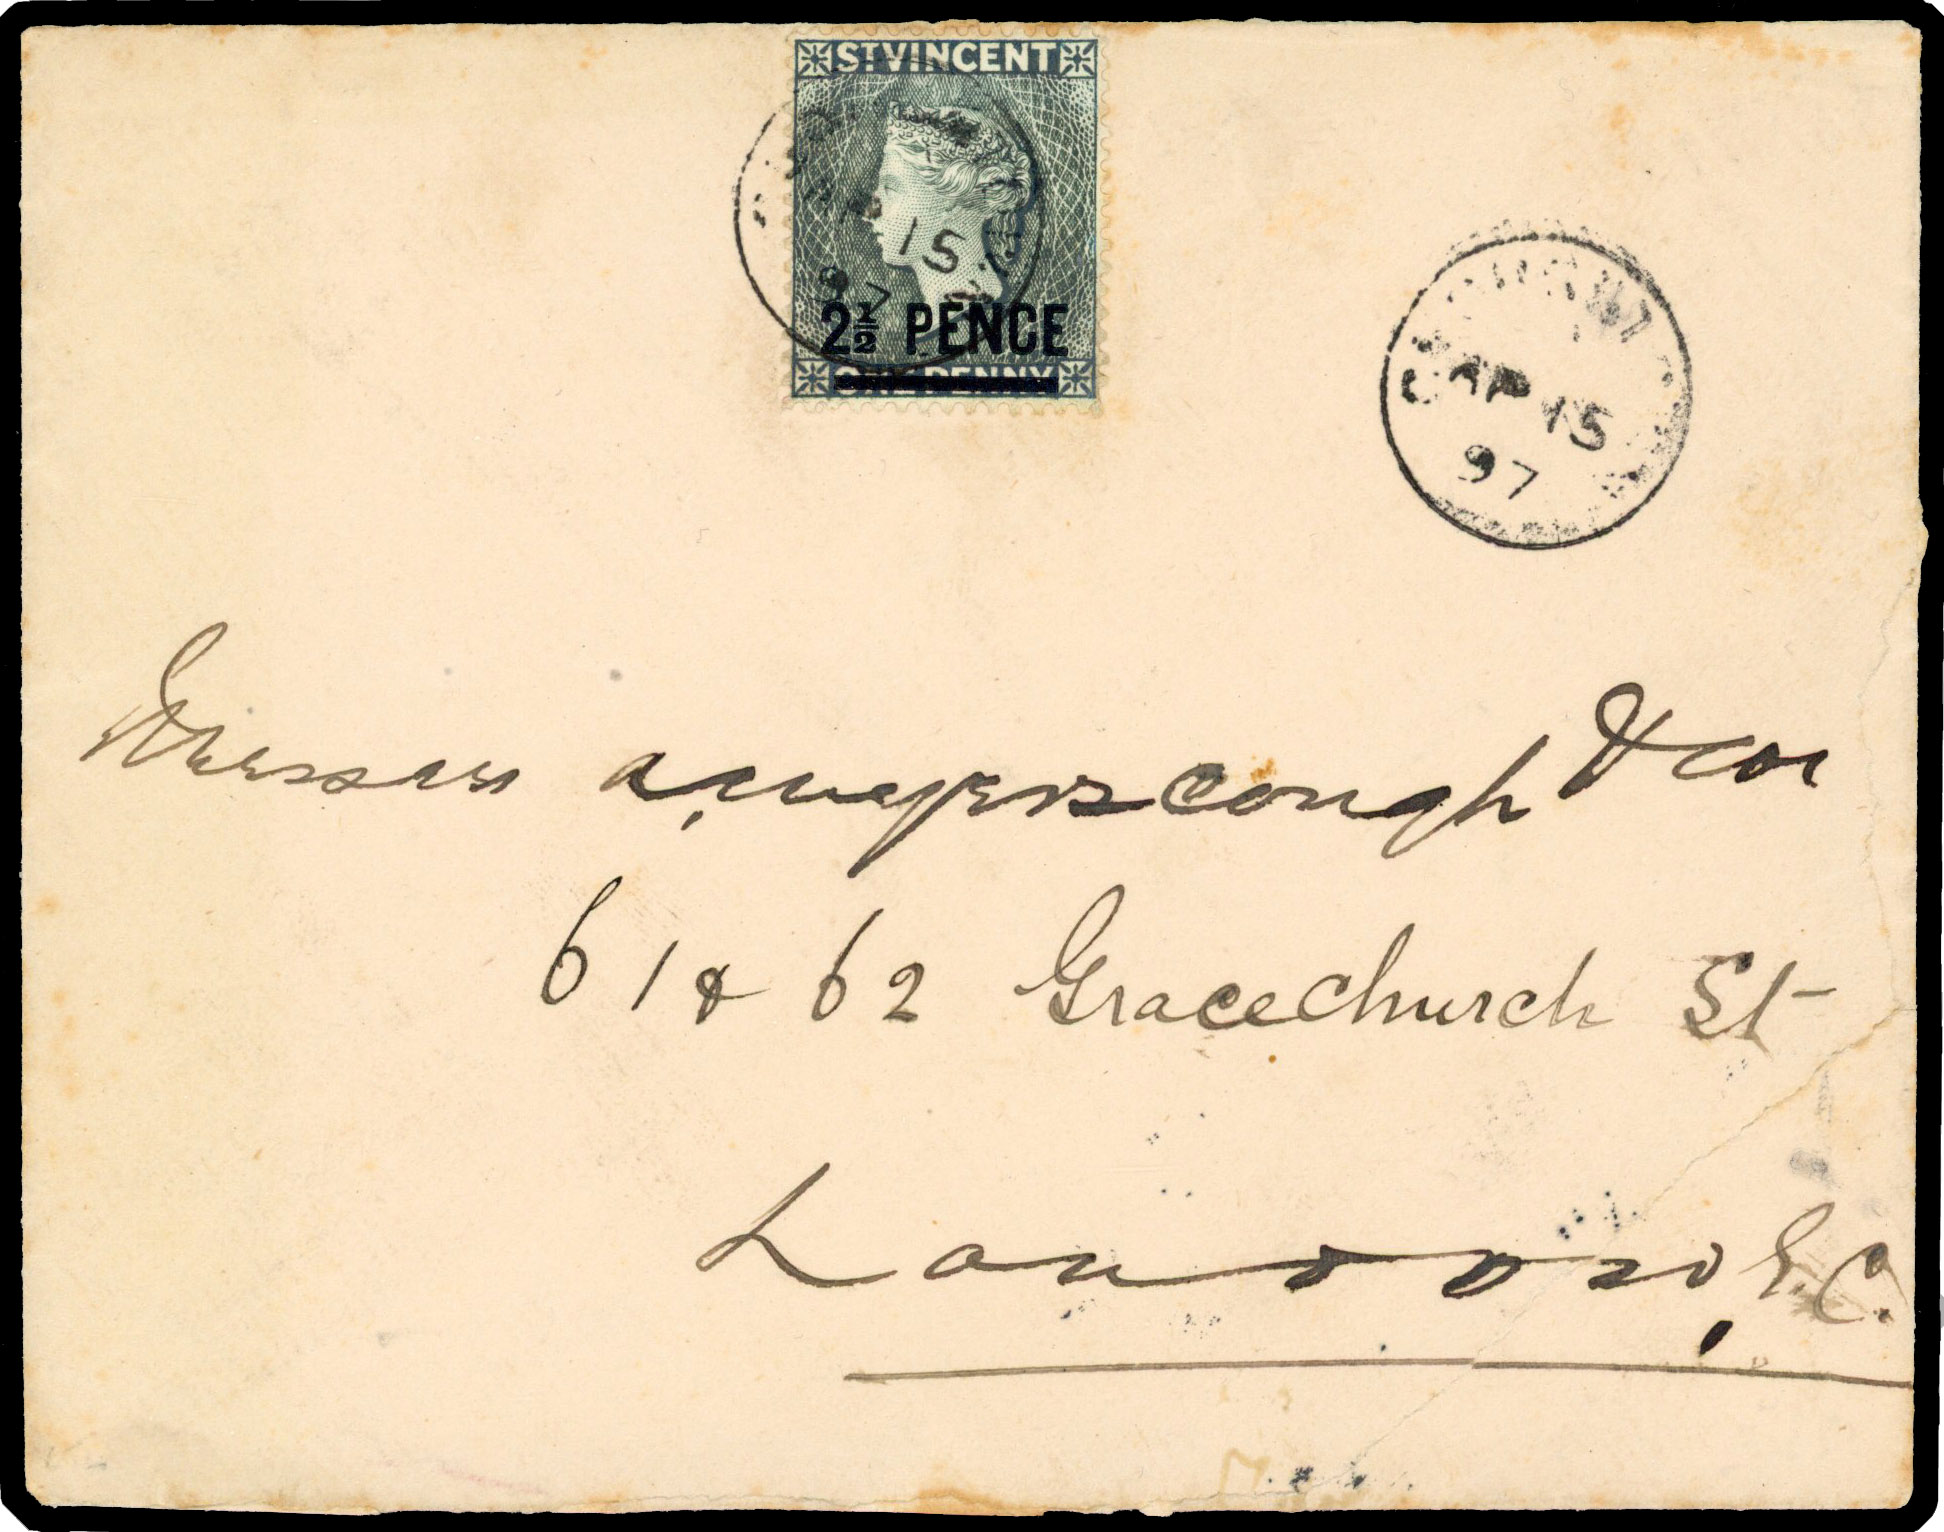 ST VINCENT
AP 15
97
2½ PENCE
ONE PENNY
AP 15
97
Messrs & Co
61 & 62 Gracechurch St
London, E.C.